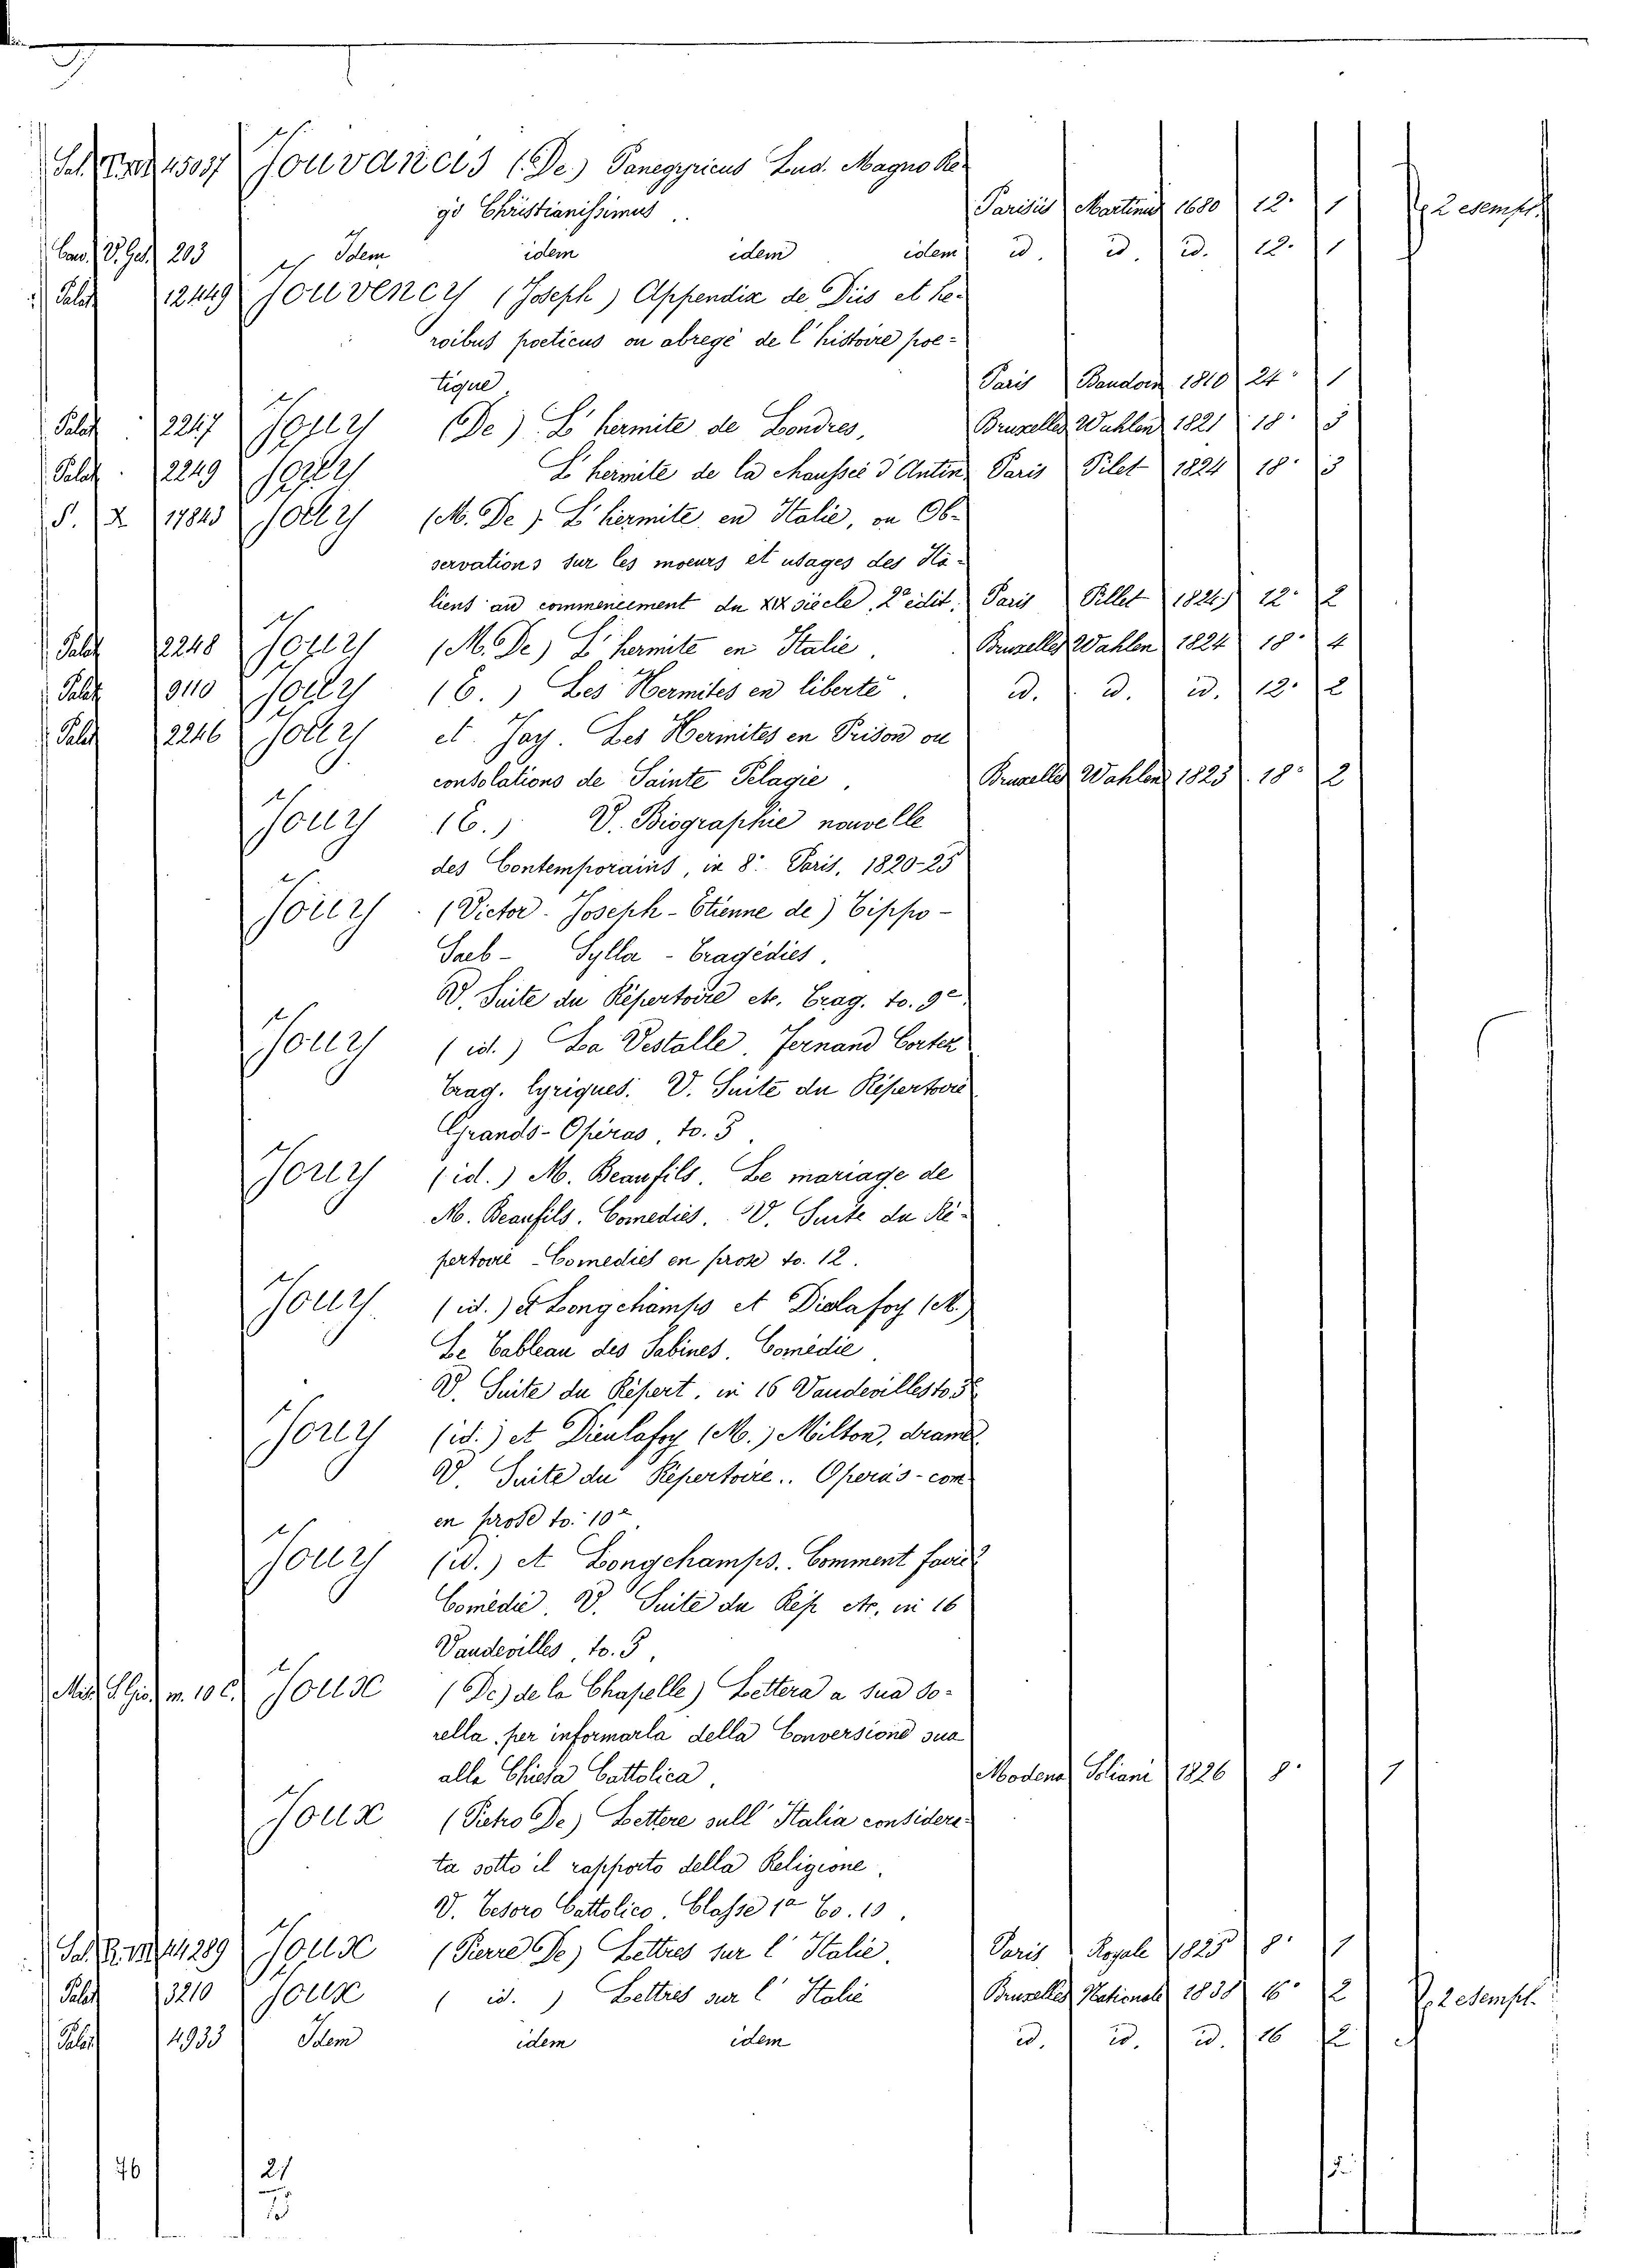 45037 Jouvancis (De) Panegyricus Lud. Magno Re-
gis Christianissimus. Parisiis Martinus 1680 12. 1 2 esempl.
203 Idem idem idem idem id. id. id. 12. 1
Palat 12449 Jouvency (Joseph) Appendix de Diis et he-
roibus poeticus ou abregé de l'histoire poe-
tique Paris 1810 24 1
Palat 2247 Jouy (De) L'hermite de Londres, Bruxelles Wahlen 1821 18 3
Palat 2249 Jouy L'hermite de la chaussée d'Antin Paris Pilet 1824 18 3
S. X 17843 Jouy (M. De) L'hermite en Italie, ou Ob-
servations sur les moeurs et usages des Ita-
liens au commencement du XIX siècle, 2e edit. Paris Pillet 1824 12 2
Palat 2248 Jouy (M. De) L'hermite en Italie. Bruxelles Wahlen 1824 18 4
Palat 9110 Jouy (E.) Les Hermites en liberté. id. id. id. 12 2
Palat 2246 Jouy et Jay. Les Hermites en Prison ou
consolations de Sainte Pelagie, Bruxelles Wahlen 1823 18 2
Jouy (E.) V. Biographie nouvelle
des Contemporains, in 8° Paris, 1820-25
Jouy (Victor-Joseph-Etienne de) Tippo-
Saeb- Sylla - Tragédies.
V. Suite du Répertoire etc. Trag. to. 9e
Jouy (id.) La Vestalle. Fernand Cortez
Trag. lyriques. V. Suite du Répertoire
Grands-Opéras, to. 3
Jouy (id.) M. Beaufils. Le mariage de
M. Beaufils. Comedies. V. Suite du Ré-
pertoire - Comedies en prose to. 12.
Jouy (id.) et Longchamps et Dielafoy (M.)
Le Tableau des Sabines. Comédie
V. Suite du Répert. in 16 Vaudevilles to. 3e
Jouy (id.) et Dieulafoy (M.) Milton, drame
V. Suite du Répertoire.. Operas-com
en prose to. 10e
Jouy (id.) et Longchamps. Comment faire?
Comédie. V. Suite du Rép etc. in 16
Vaudevilles, to. 3,
m. 10 C. Jouse (De) de la Chapelle) Lettera a sua so-
rella per informarla della Conversione sua
alla Chiesa Cattolica, Modena Soliani 1826 8. 1
Joux (Pietro De) Lettere sull'Italia considera-
ta sotto il rapporto della Religione.
V. Tesoro Cattolico. Classe 1a To. 10.
44289 Joux (Pierre De) Lettres sur l'Italie. Paris Royale 1825 8. 1
Palat 3210 Joux (id.) Lettres sur l'Italie Bruxelles Nationale 1838 16 2 2 esempl.
Palat 4933 Idem idem idem id. id. id. 16 2
76 21